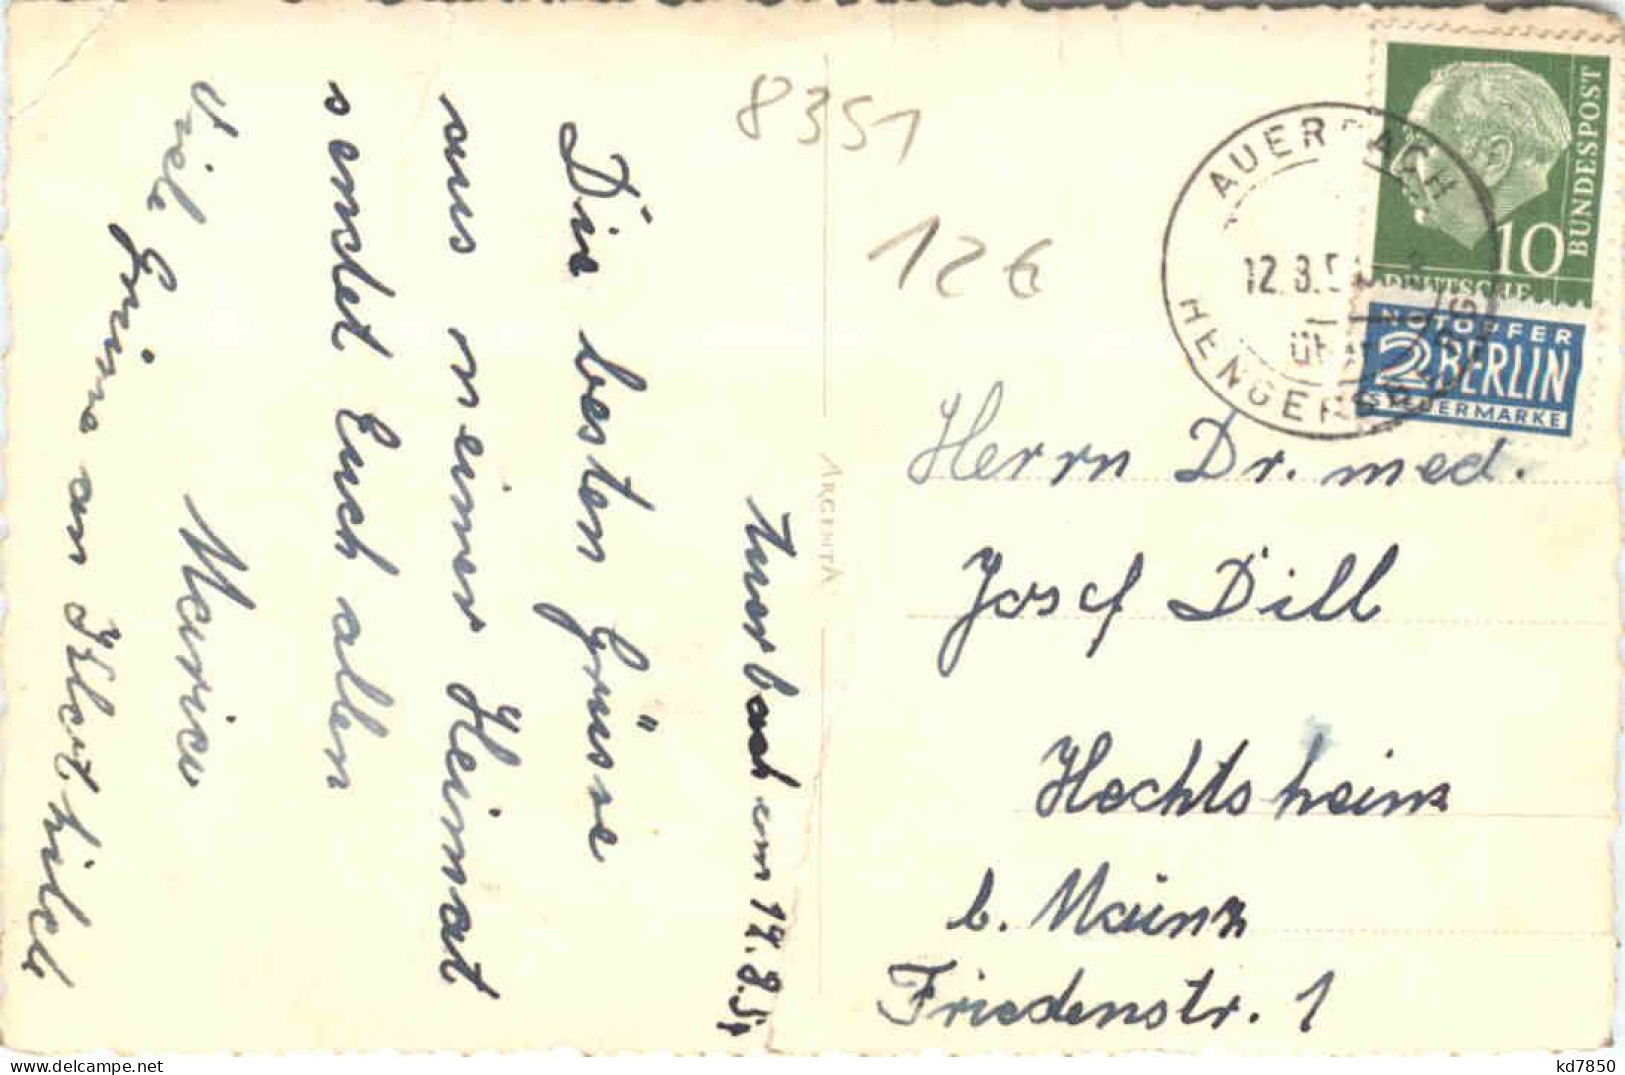 Auerbach am 12.8.54
Die besten Grüsse
aus meiner Heimat
sendet Euch allen
Maria
Viele Grüsse an Klothilde
8351
12€
ARGENTA
AUERBACH
12.8.5
ÜBER
HENGERSBERG
10
BUNDESPOST
DEUTSCHE
NOTOPFER
2 BERLIN
STEUERMARKE
Herrn Dr. med.
Josef Dill
Hechtsheim
b. Mainz
Friedenstr. 1
kd7850